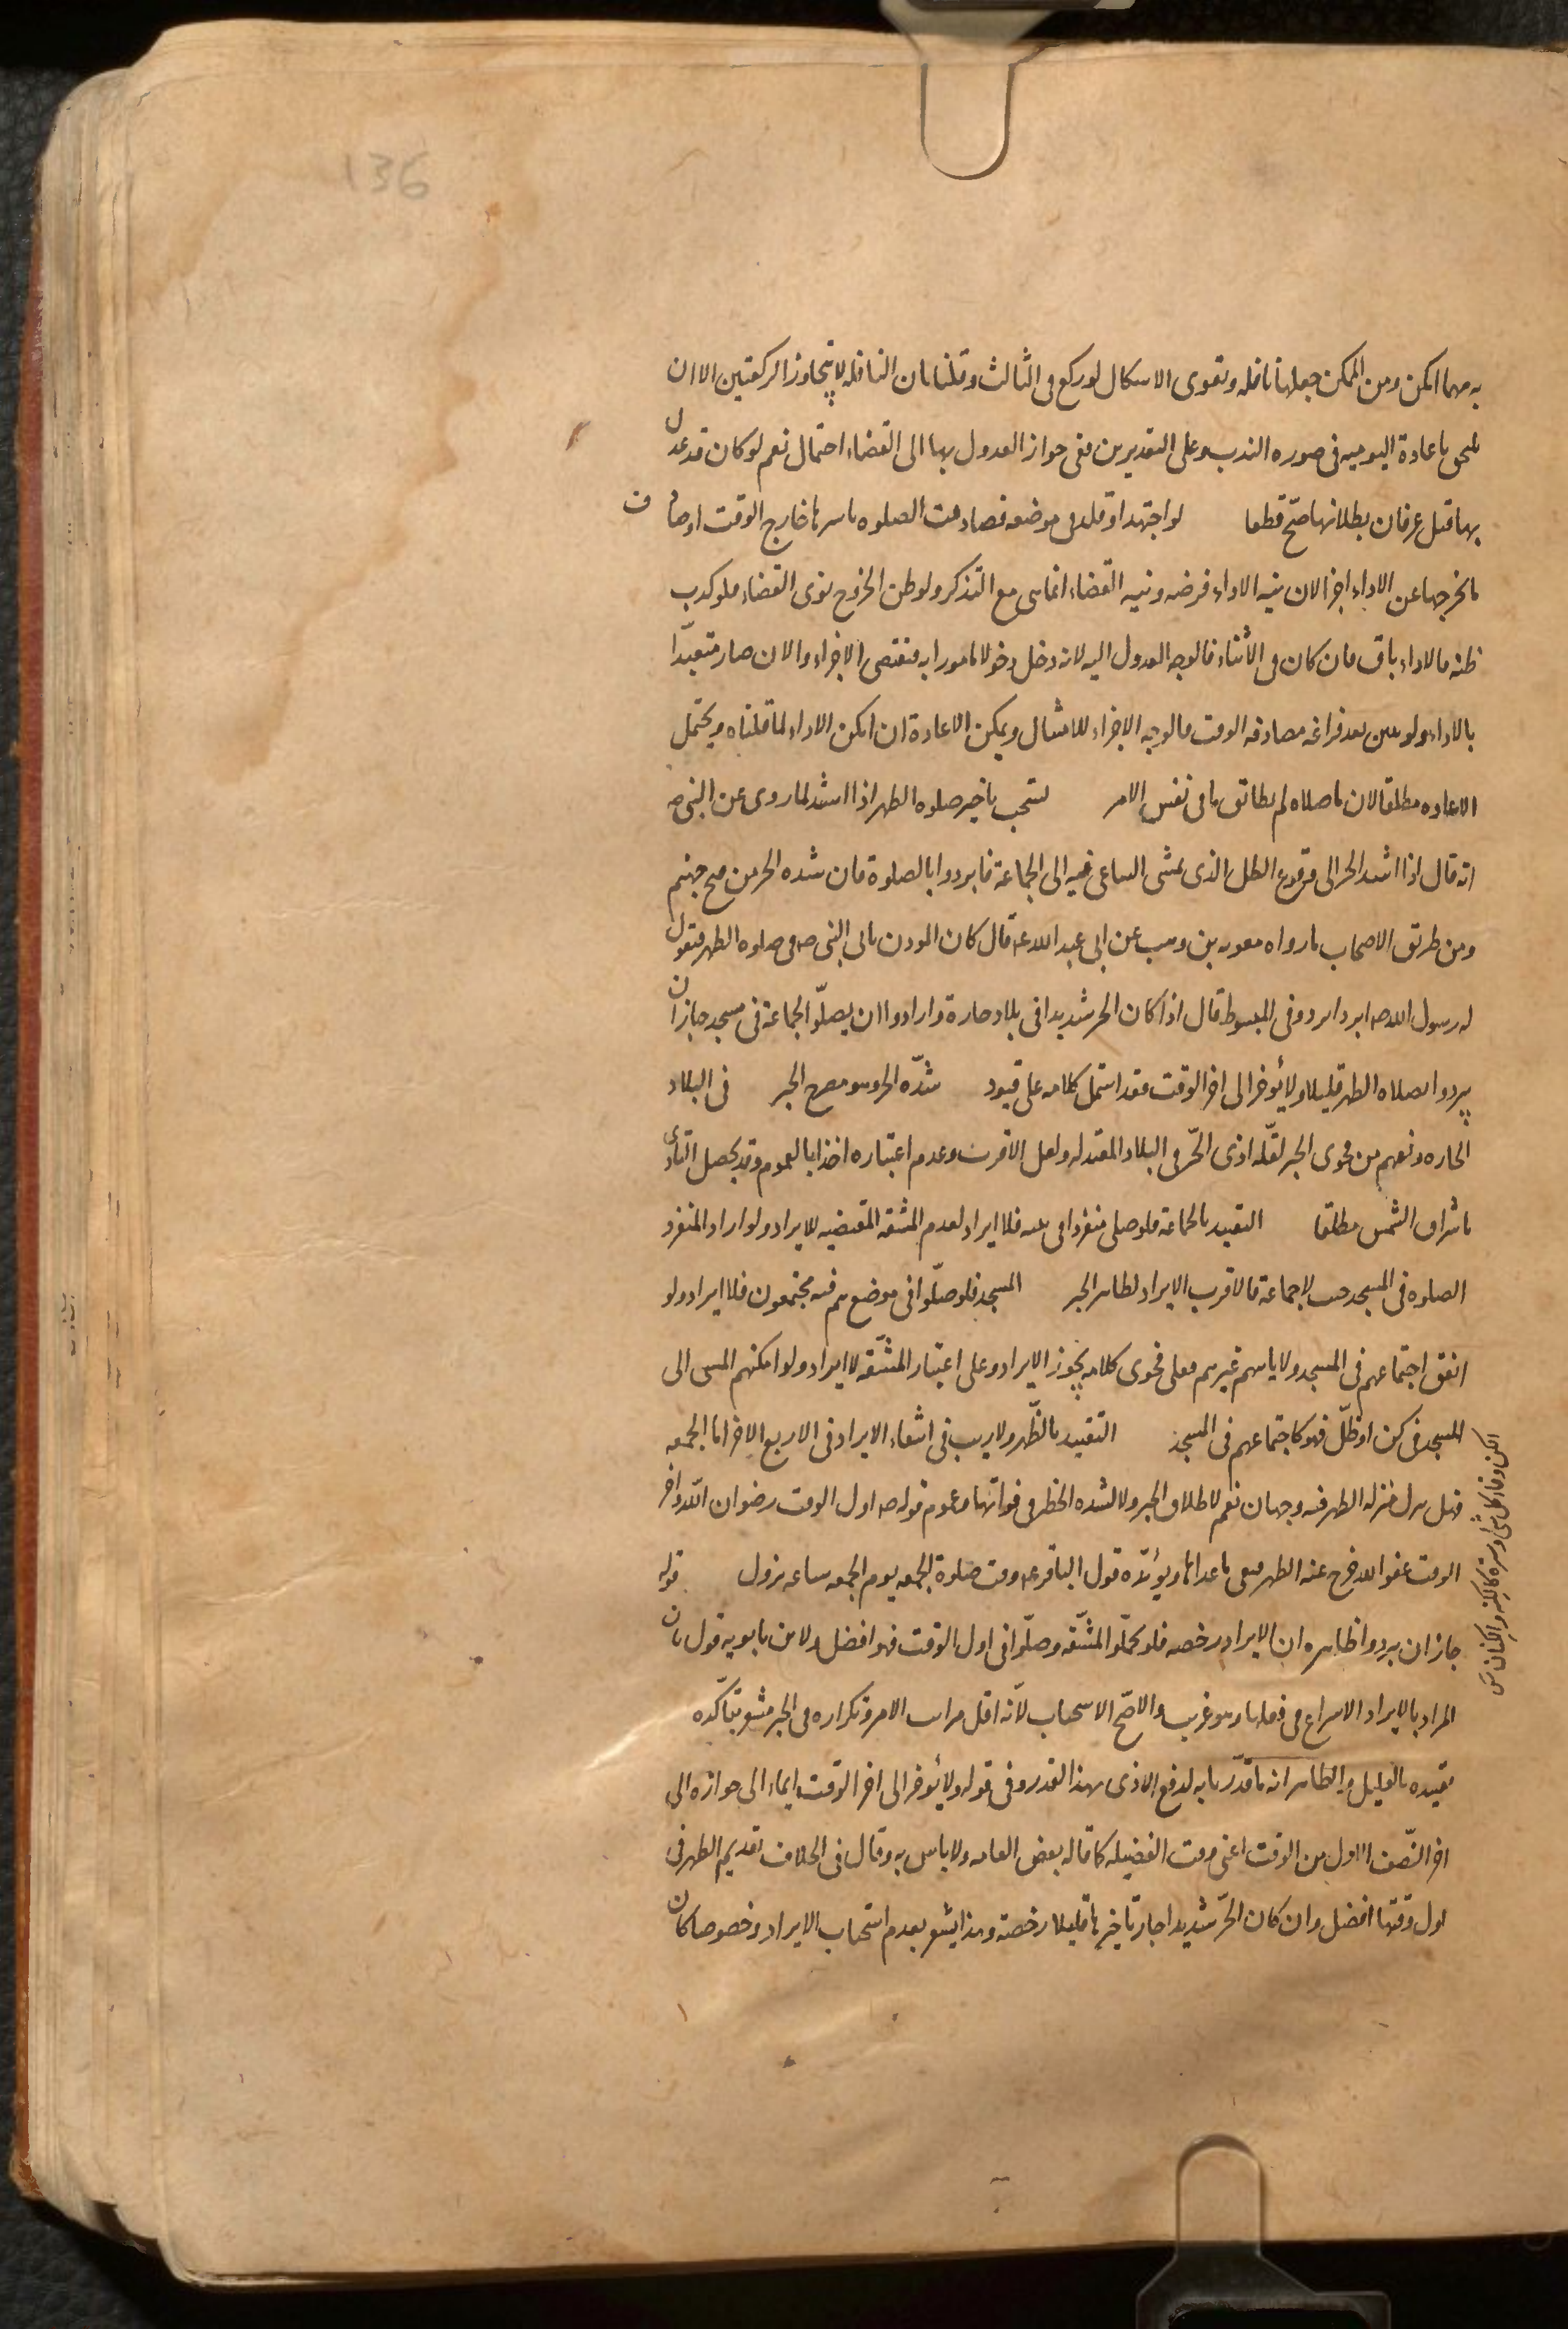 136
به مهما امكن ومن الممكن جعلها نافله ويقوى الاشكال لو ركع فى الثالث وقلنا بان النافله لا يتجاوز الركعتين الا ان
يلحق باعادة اليوميه فى صوره الندب وعلى التقديرين ففى جواز العدول بها الى القضاء احتمال نعم لو كان قد عدل
بها قبل عرفان بطلانها صحّ قطعا لو اجتهد او قلد فى موضعه فصادفت الصلوه باسرها خارج الوقت او صادف
ما يخرجها عن الاداء اجزا لان نيه الاداء فرضه ونيه القضاء انما هى مع التذكر ولو ظن الخروج نوى القضاء فلو كذب
ظنه فالاداء باق فان كان فى الاثناء فالوجه العدول اليه لانه دخل دخولا مامورا به فيقتضى الاجزاء والان صار متعبّدا
بالاداء ولو تبين بعد فراغه مصادفه الوقت فالوجه الاجزاء للامتثال ويمكن الاعادة ان امكن الاداء لما قلناه ويحتمل
الاعاده مطلقا لان ما صلاه لم يطابق ما فى نفس الامر يستحب تاخير صلوه الظهر اذا اشتد لما روى عن النبى صه
انه قال اذا اشتد الحر الى وقوع الظل الذى يمشى الساعى فيه الى الجماعة فابردوا بالصلوة فان شده الحر من فيح جهنم
ومن طريق الاصحاب ما رواه معويه بن وهب عن ابى عبد الله عه قال كان الموذن ياتى النبى صه فى صلوه الظهر فيقول
له رسول الله صه ابرد ابرد وفى المبسوط قال اذا كان الحر شديدا فى بلاد حارة وارادوا ان يصلّوا الجماعة فى مسجد جاز ان
يبردوا بصلاه الظهر قليلا ولا يؤخر الى اخر الوقت فقد اشتمل كلامه على قيود شدّه الحر وهو مصرح الخبر فى البلاد
الحاره ونفهم من فحوى الخبر لقلّه اذى الحّر فى البلاد المعتدله ولعل الاقرب وعدم اعتباره اخذا بالعموم وقد يحصل التاذى
باشراق الشمس مطلقا التقييد بالجماعة فلو صلى منفردا فى بيته فلا ابراد لعدم المشقه المقتضيه للابراد ولو اراد المنفرد
الصلوه فى المسجد حيث لا جماعة فالاقرب الابراد لظاهر الخبر المسجد فلو صلّوا فى موضع هم فيه مجتمعون فلا ابراد ولو
اتفق اجتماعهم فى المسجد ولا ياتيهم غيرهم فعلى فحوى كلامه يجوز الابراد وعلى اعتبار المشّقه لا ابراد ولو امكنهم المشى الى
المسجد فى كن او ظلّ فهو كاجتماعهم فى المسجد التقييد بالظّهر ولا ريب فى انتفاء الابراد فى الاربع الاخر اما الجمعه
فهل تنزل منزله الظهر فيه وجهان نعم لاطلاق الخبر ولا لشده الخطر فى فواتها وعموم قوله صه اول الوقت رضوان اللّه واخر
الوقت عفو الله خرج عنه الظهر فبقى ما عداها ويؤيّده قول الباقر عه وقت صلوة الجمعه يوم الجمعه ساعه تزول قوله
جاز ان يبردوا ظاهره ان الابراد رخصه فلو تحمّلوا المشّقه وصلّوا فى اول الوقت فهو افضل ولابن بابويه قول بان
المراد بالابراد الاسراع فى فعلها وهو غريب والاصّح الاستحباب لانّه اقل مراتب الامر وتكراره فى الخبر مشعر بتأكّده
تقييده بالقليل والظاهر انه ما قدّرنا به لدفع الاذى بهذا القدر وفى قوله ولا يؤخر الى اخر الوقت ايماء الى جوازه الى
اخر النّصف الاول من الوقت اعنى وقت الفضيله كما قاله بعض العامه ولا باس به وقال فى الخلاف تقديم الظهر فى
اول وقتها افضل وان كان الحّر شديدا جاز تاخيرها قليلا رخصة وهذا يشعر بعدم استحباب الابراد وخصوصا كان
الكن وقاء كل شى وستره كالكنه والكنان